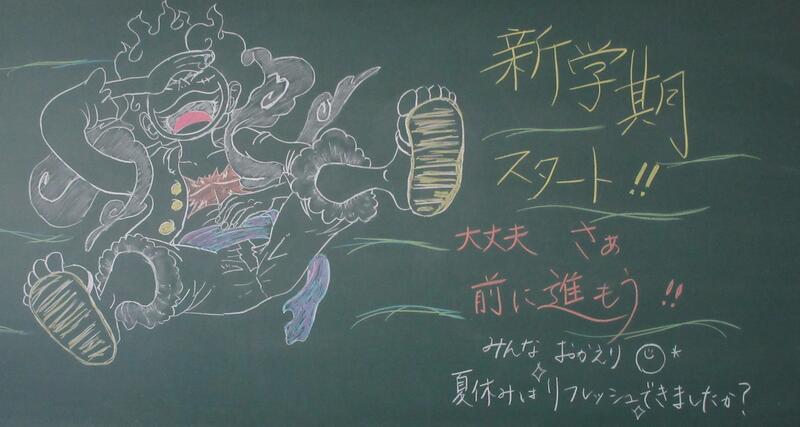 新学期
スタート!!
大丈夫 さぁ
前に進もう!!
みんな おかえり
夏休みはリフレッシュできましたか?